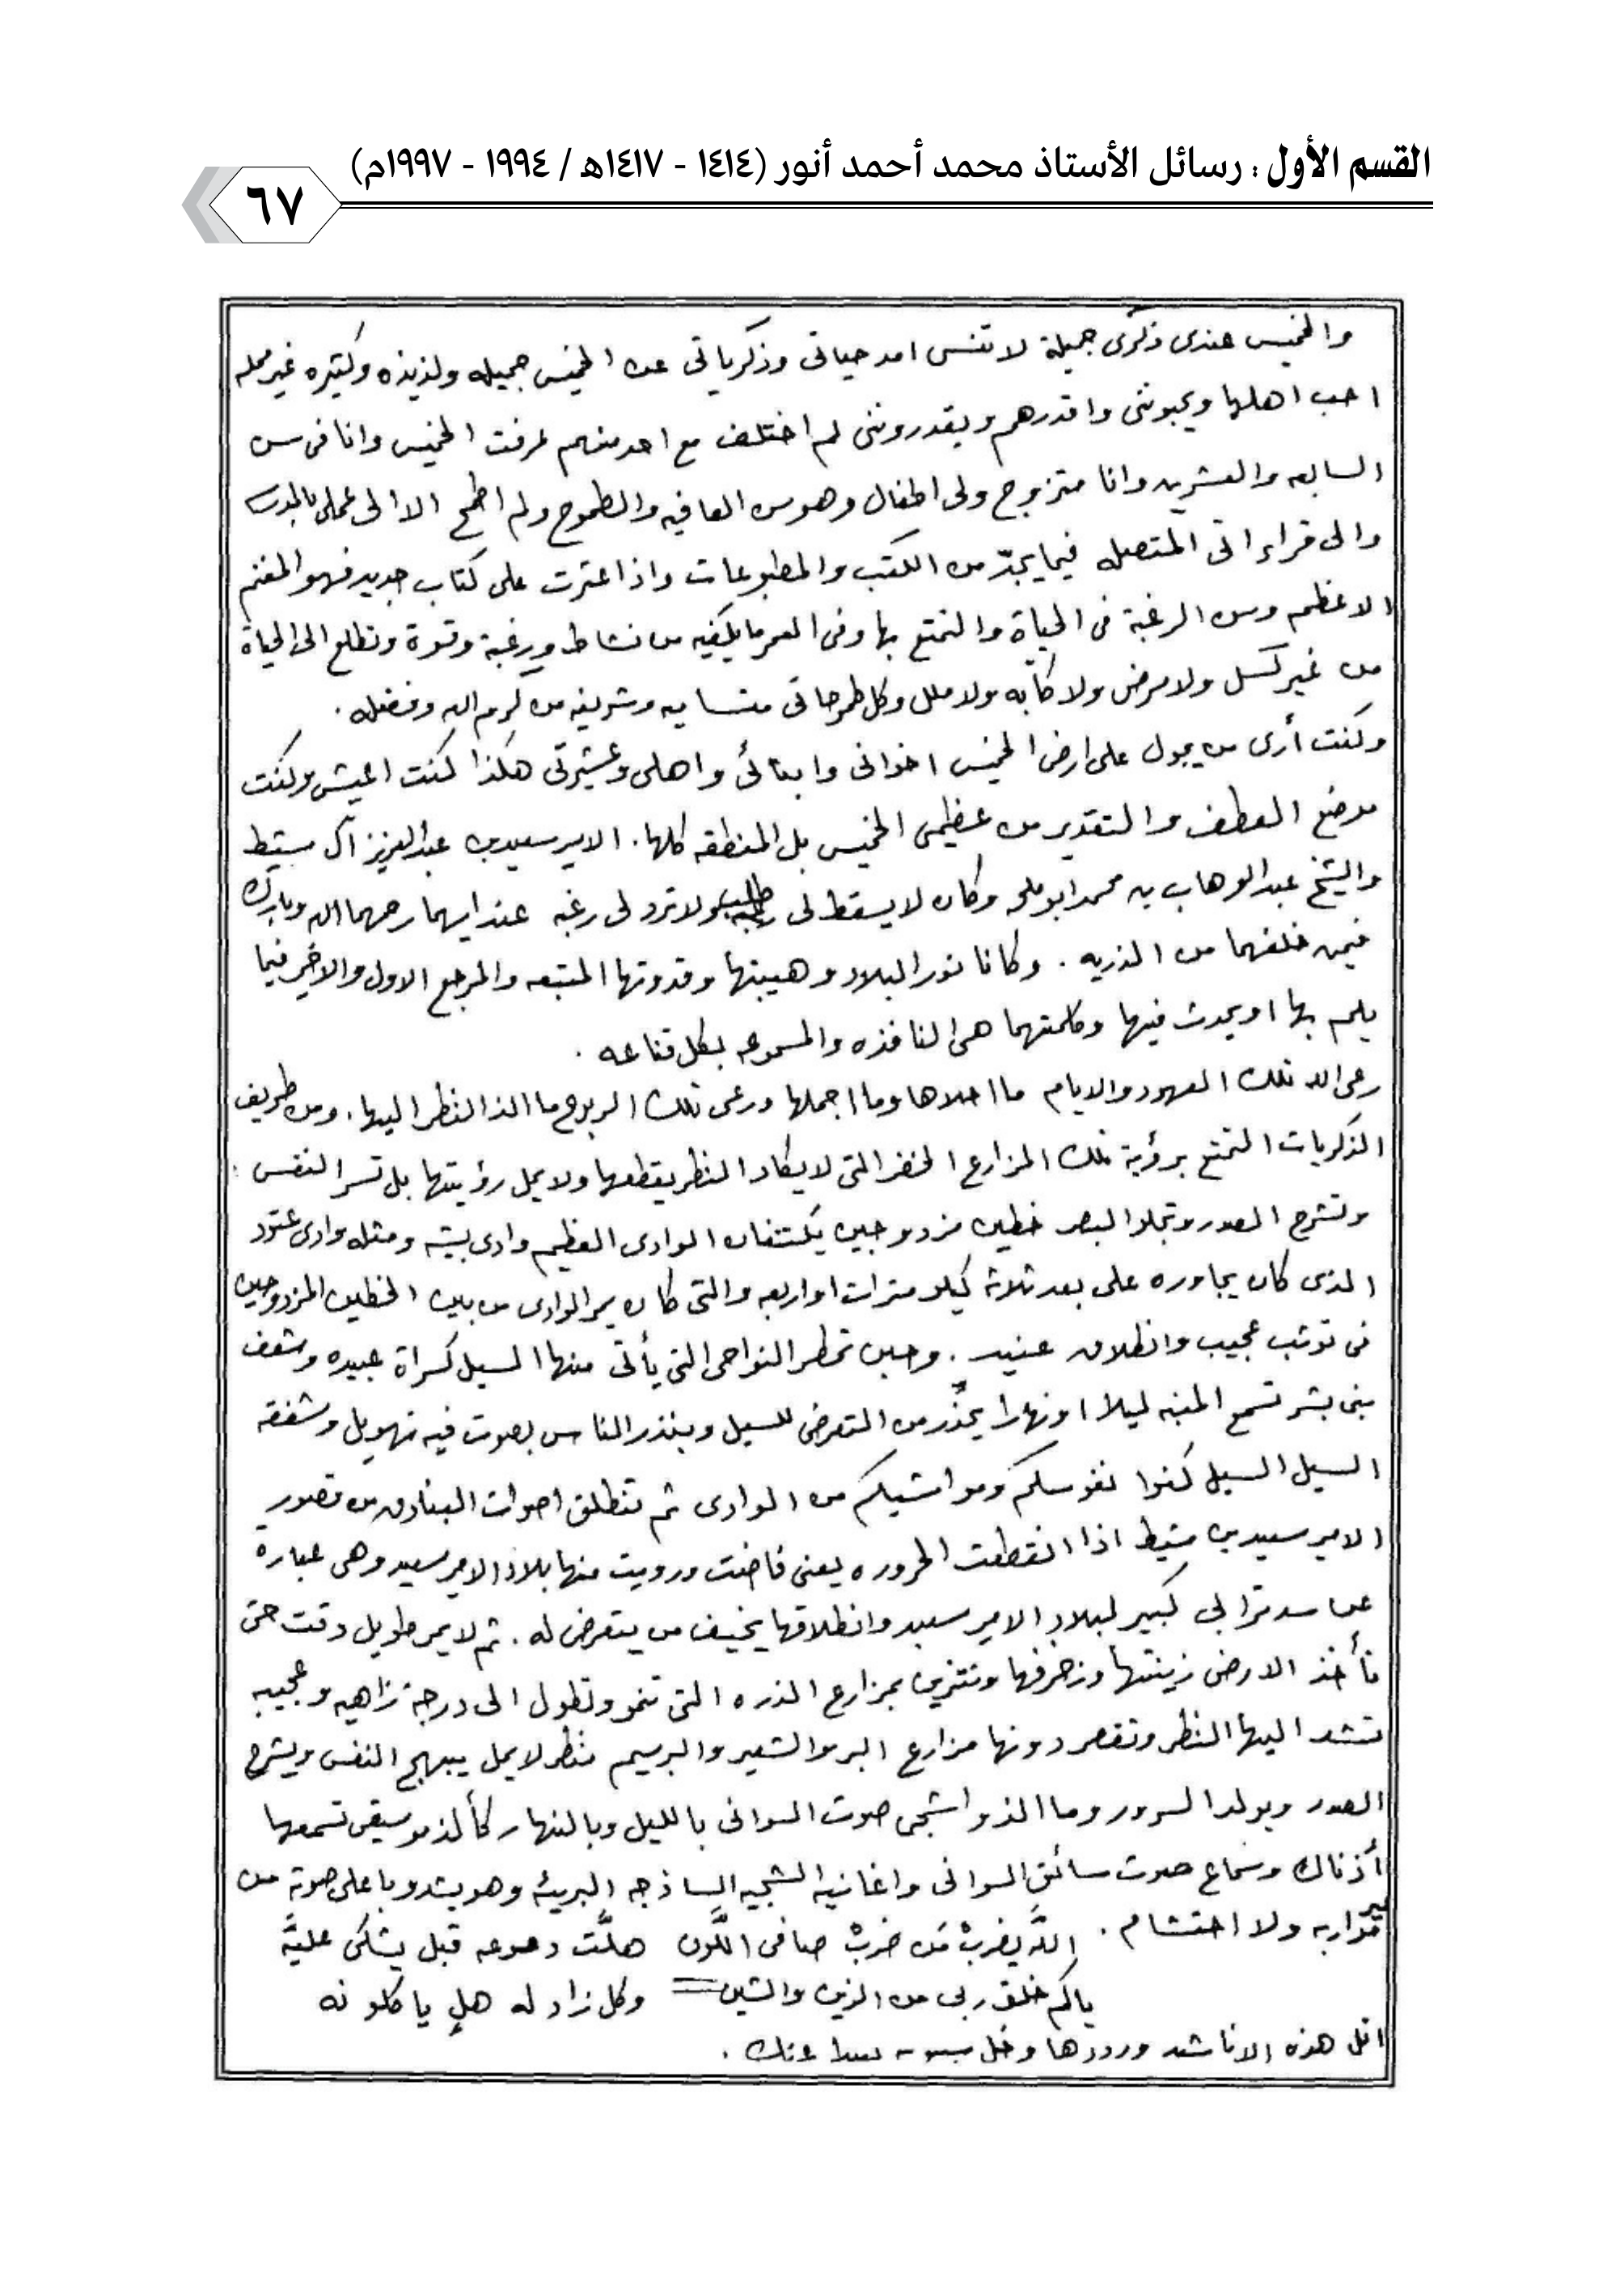 القسم الأول : رسائل الأستاذ محمد أحمد أنور (١٤١٤ - ١٤١٧هـ / ١٩٩٤ - ١٩٩٧م)
٦٧
والخميس عندى ذكرى جميلة لا تنسى امد حياتى وذكرياتى عن الخميس جميله ولذيذه وكثيره غير ممله
احب اهلها ويحبوننى واقدرهم ويقدروننى لم اختلف مع احد منهم عرفت الخميس وانا فى سن
السابعه والعشرين وانا متزوج ولى اطفال وهو سن العافيه والطموح ولم اطمح الا الى عملى بالمدرسه
والى قراءاتى المتصله فيما يجدّ من الكتب والمطبوعات واذا عثرت على كتاب جديد فهو المغنم
الاعظم ومن الرغبة فى الحياة والتمتع بها وفى العمر ما يكفيه من نشاط ورغبة وقوة وتطلع الى الحياة
من غير كسل ولا مرض ولا كآبه ولا ملل وكل طموحاتى متساميه وشريفه من كرم الله وفضله .
وكنت أرى من يجول على ارض الخميس اخوانى وابنائى واهلى وعشيرتى هكذا كنت اعيش وكنت
موضع العطف والتقدير من عظيمى الخميس بل المنطقه كلها . الامير سعيد بن عبدالعزيز آل مشيط
والشيخ عبدالوهاب بن محمد ابوملحه وكان لا يسقط لى طلب ولا ترد لى رغبه عند ايهما رحمهما الله وبارك
فيمن خلفهما من الذريه . وكانا نور البلاد وهيبتها وقدوتها المتبعه والمرجع الاول والاخير فيما
يلم بها او يحدث فيها وكلمتهما هى النافذه والمسموعه بكل قناعه .
رعى الله تلك العهود والايام ما احلاها وما اجملها ورعى تلك الربوع ما الذ النظر اليها . ومن طريف
الذكريات التمتع برؤية تلك المزارع الخضر التى لا يكاد النظر يقطعها ولا يمل رؤيتها بل تسر النفس
وتشرح الصدر وتجلو البصر خطين مزدوجين يكتنفان الوادى العظيم وادى بيشه ومثله وادى عتود
الذى كان يجاوره على بعد ثلاثة كيلو مترات او اربعه والتى كان يمر الوادى من بين الخطين المزدوجين
فى توثب عجيب وانطلاق عنيد . وحين تمطر النواحى التى يأتى منها السيل كسراة عبيده وشعف
بنى بشر تسمع المنبه ليلا او نهارا يحذّر من التعرض للسيل وينذر الناس بصوت فيه تهويل وشفقه
السيل السيل كفوا نفوسكم ومواشيكم من الوادى ثم تنطلق اصوات البنادق من قصور
الامير سعيد بن مشيط اذا انقطعت الحروره يعنى فاضت ورويت منها بلاد الامير سعيد وهى عبارة
عن سد ترابى كبير لبلاد الامير سعيد وانطلاقها يخيف من يتعرض له . ثم لا يمر طويل وقت حتى
تأخذ الارض زينتها وزخرفها وتتزين بمزارع الذره التى تنمو وتطول الى درجة زاهيه وعجيبه
تشد اليها النظر وتقصر دونها مزارع البر والشعير والبرسيم منظر لا يمل يبهج النفس ويشرح
الصدر ويولد السرور وما الذ واشجى صوت السوانى بالليل وبالنهار كألذ موسيقى تسمعها
أذناك وسماع صوت سائق السوانى واغانيه الشجيه الساذجه البريئه وهو يشدو باعلى صوته من
غير مواربه ولا احتشام . اللّه يضربْ مَن ضربْ صافى اللَّون هلَّت دموعه قبل يشكى عليَّه
ياكم خلق ربى من الزين والشين وكل زاد له هلٍ ياكلونه
اتل هذه الاناشيد ورددها وخل عنك .